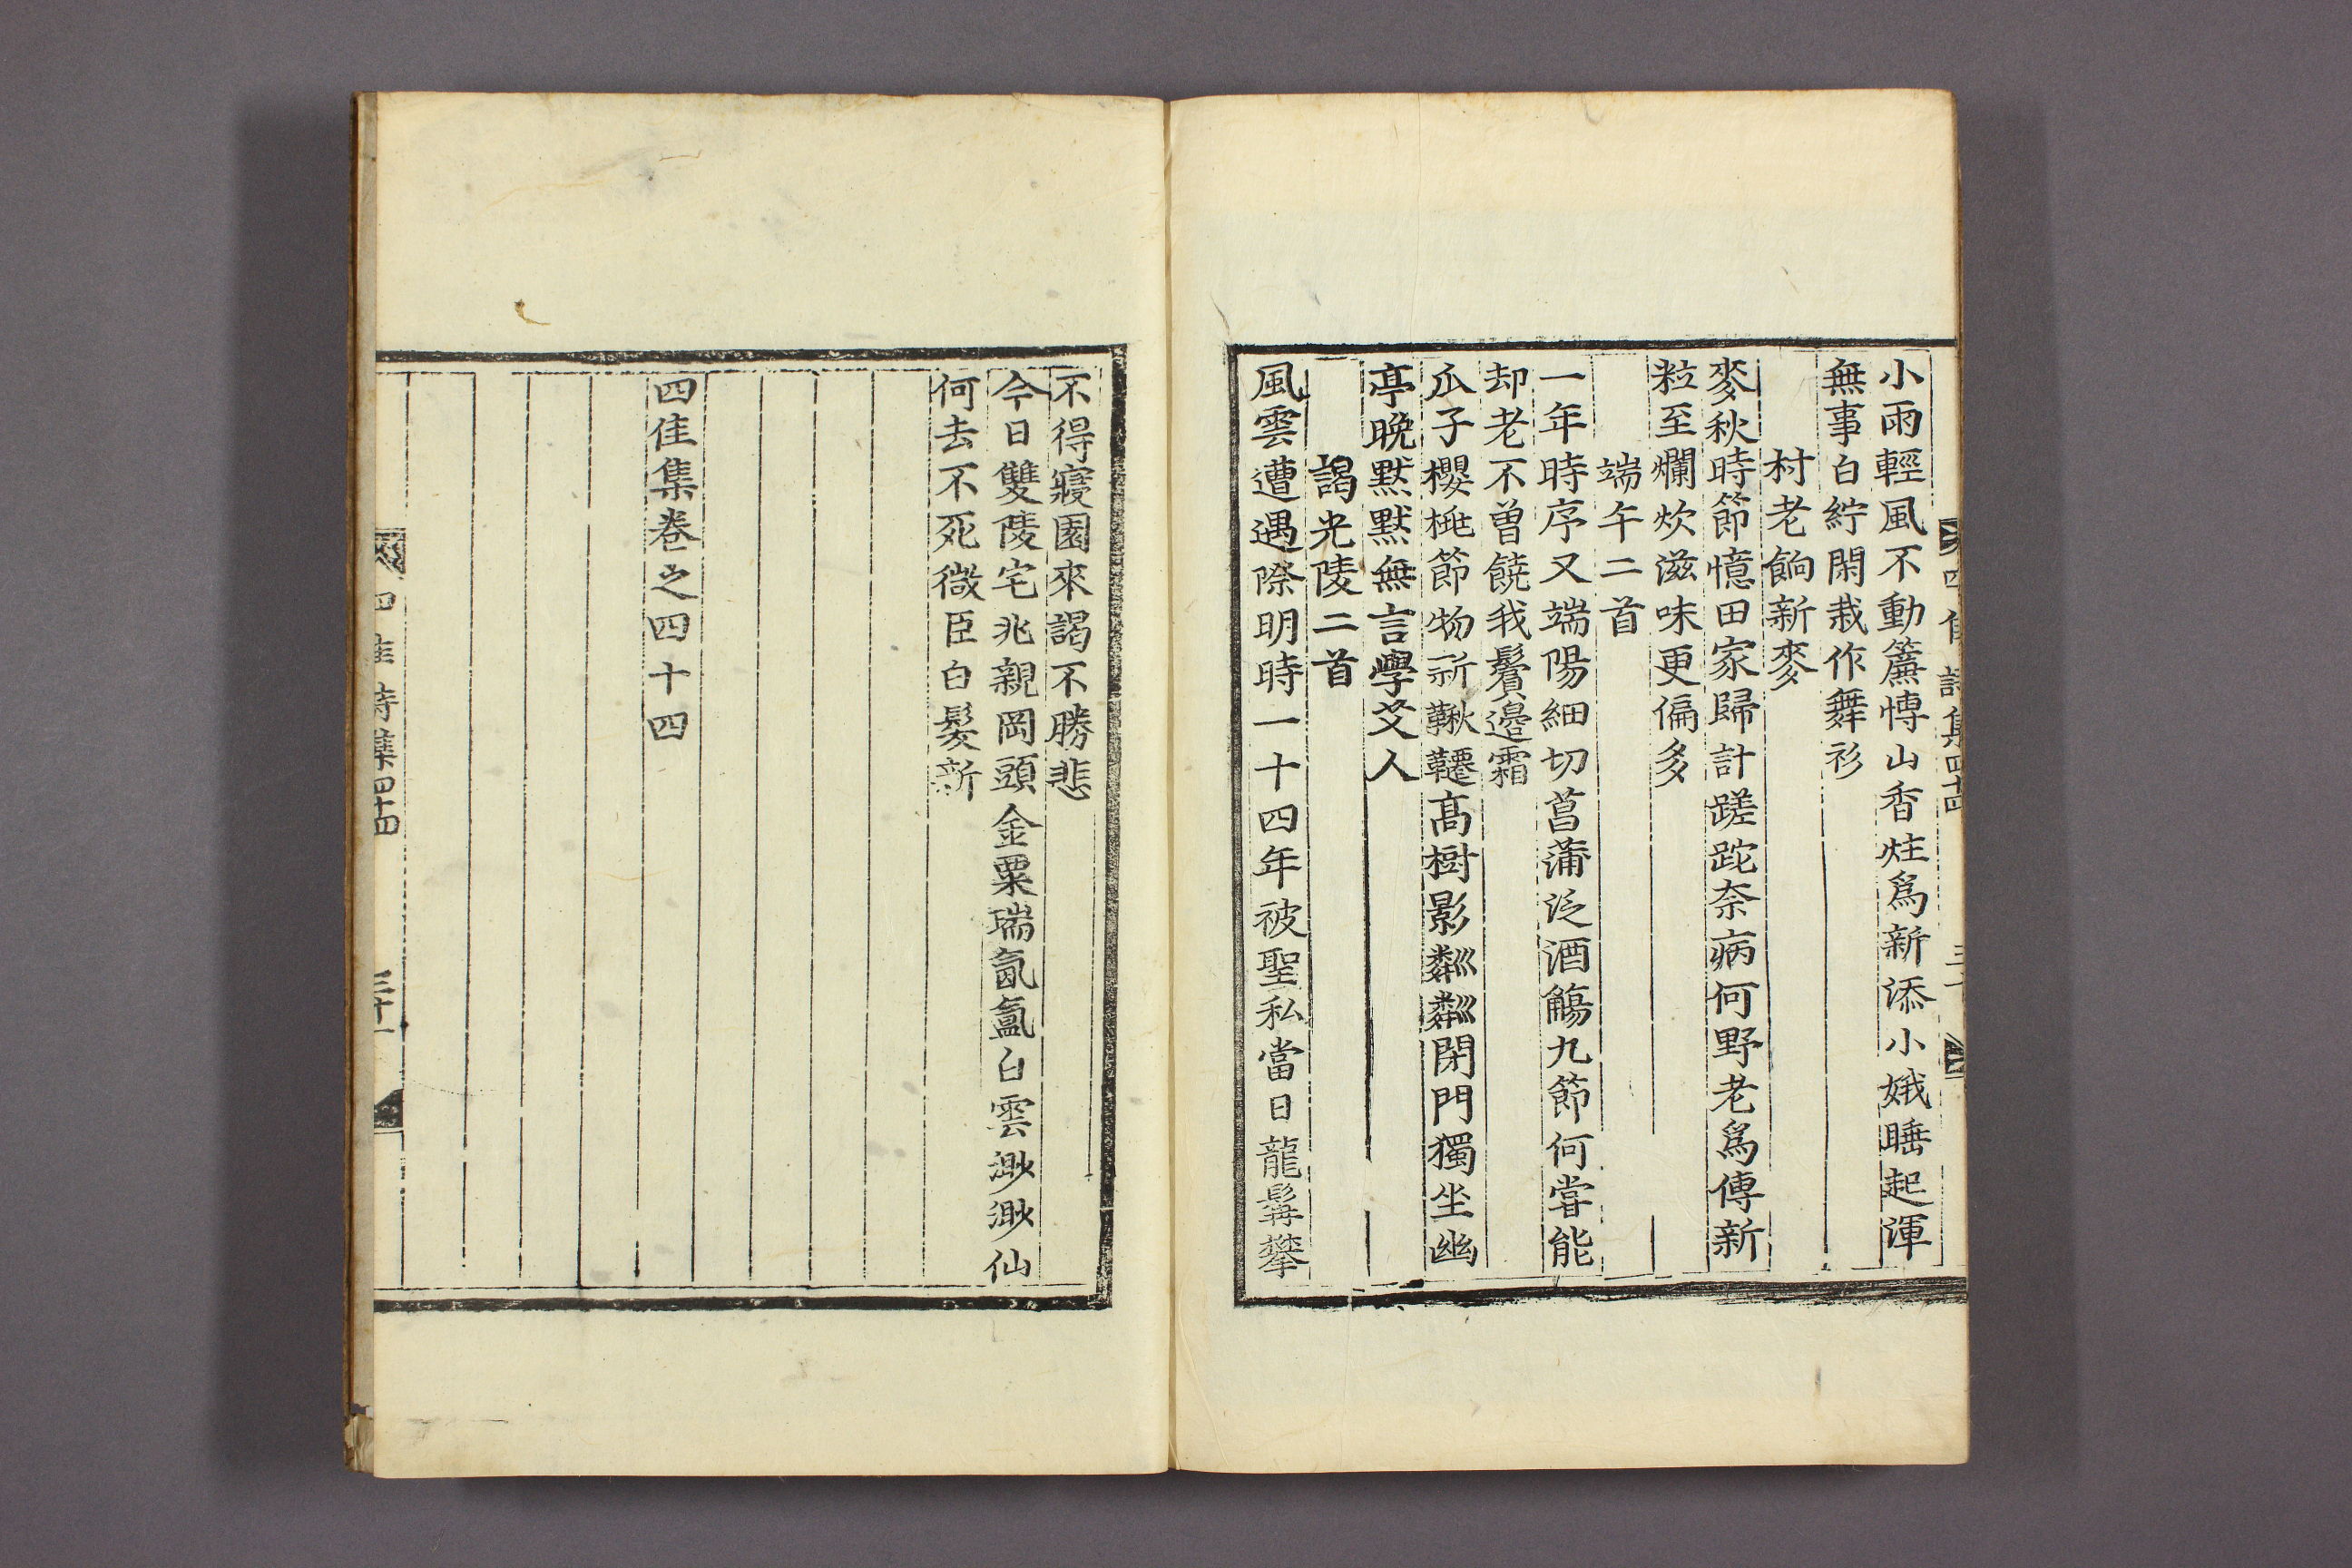 小雨輕風不動簾慱山香炷爲新添小娥睡起渾
無事白紵閑栽作舞衫
村老餉新麥
麥秋時節憶田家歸計蹉跎奈病何野老爲傳新
粒至爛炊滋味更偏多
端午二首
一年時序又端陽細切菖蒲泛酒觴九節何甞能
却老不曽饒我鬢邉霜
瓜子櫻桃節物新鞦韆髙樹影粼粼閉門獨坐幽
亭晩默默無言學艾人
謁光陵二首
風雲遭遇際明時一十四年被聖私當日龍髯攀
不得寢園來謁不勝悲
今日雙陵宅兆親岡頭金粟瑞氤氳白雲渺渺仙
何去不死微臣白髮新
四佳集卷之四十四
四佳詩集四十四
三十一